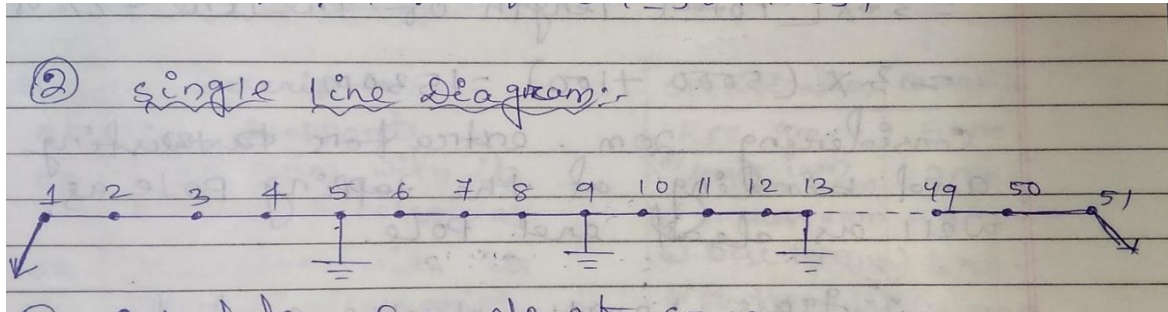 ② Single Line Diagram:-
1 2 3 4 5 6 7 8 9 10 11 12 13 49 50 51